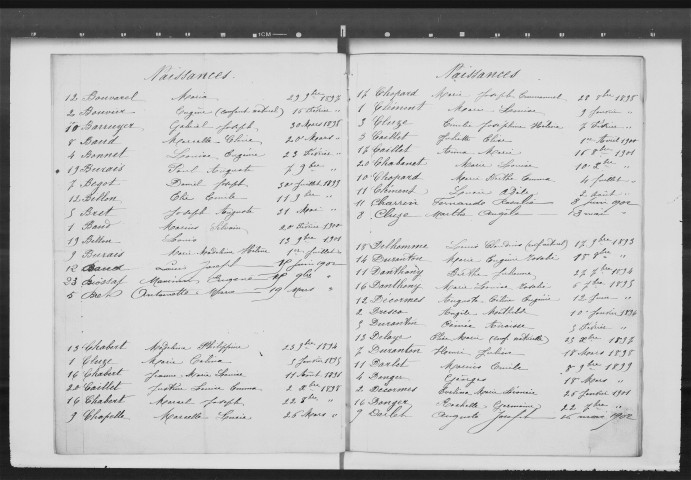 1CM
Naissances
12 Bouvarel Maria 23 9bre 1897
2 Bouveux Eugène (enfant naturel) 15 Février "
10 Barruyer Gabriel Joseph 30 Mars 1898
8 Baud Marcelle 20 Mars "
4 Bonnet Louise Eugénie 23 Février "
19 Burais Paul Auguste 7 9bre "
7 Begot Daniel Joseph 30 Juillet 1899
12 Bellon Elie Emile 11 9bre "
5 Bret Joseph Auguste 21 Mai "
1 Marius 20 Février 1900
19 Bellon Louis 13 9bre 1901
9 Burais Marie Madeleine Hélène 1er Juillet "
12 Baud Louis Joseph Juin 1902
23 Eugène "
5 Bret Antoinette Marie 19 Mars "
13 Chabert Madeleine Philippine 23 9bre 1894
1 Cluze Marie 5 Janvier 1895
16 Chabert Jeanne Marie Louise 11 Août 1896
20 Caillet Louise Emma 2 Xbre 1898
16 Chabert Marcel Joseph 22 8bre "
9 Chapelle Marcelle Lucie 25 Mars "
Naissances
17 Chopard Marie Joseph Emmanuel 28 8bre 1898
1 Clément Marie Louise 9 Janvier "
3 Cluze Emilie Joséphine Hélène 7 Février "
5 Caillet Juliette Elise 1er Avril 1900
17 Caillet Anna Marie 16 8bre 1901
20 Chabanet Marie Louise 10 Xbre "
10 Chopard Marie Berthe Emma 4 Juillet "
11 Clément Lucie 2 Août "
11 Charrin Fernande Rosalie 8 Juin 1902
8 Cluze Marthe Angela 13 mai "
18 Delhomme Louis (enf naturel) 17 9bre 1893
14 Durantin Marie Eugénie Rosalie 15 8bre "
11 Danthony Berthe Juliane 27 7bre 1894
16 Danthony Marie Louise Rosalie 5 7bre 1895
12 Décormes Auguste Eugène 12 Juin "
2 Dresco Angèle Mathilde 10 Janvier 1896
5 Durantin 5 Février "
13 Delaye Elise Marie (enf naturelle) 23 Xbre 1897
7 Duranton Henri Julien 18 Mars 1898
11 Darlet Marius Emile 8 9bre 1899
4 Donger Georges 18 Mars "
2 Décormes Evelina Marie 25 Janvier 1901
16 Donger Rachelle Germaine 22 7bre "
9 Darlet Auguste Joseph 15 mai 1902